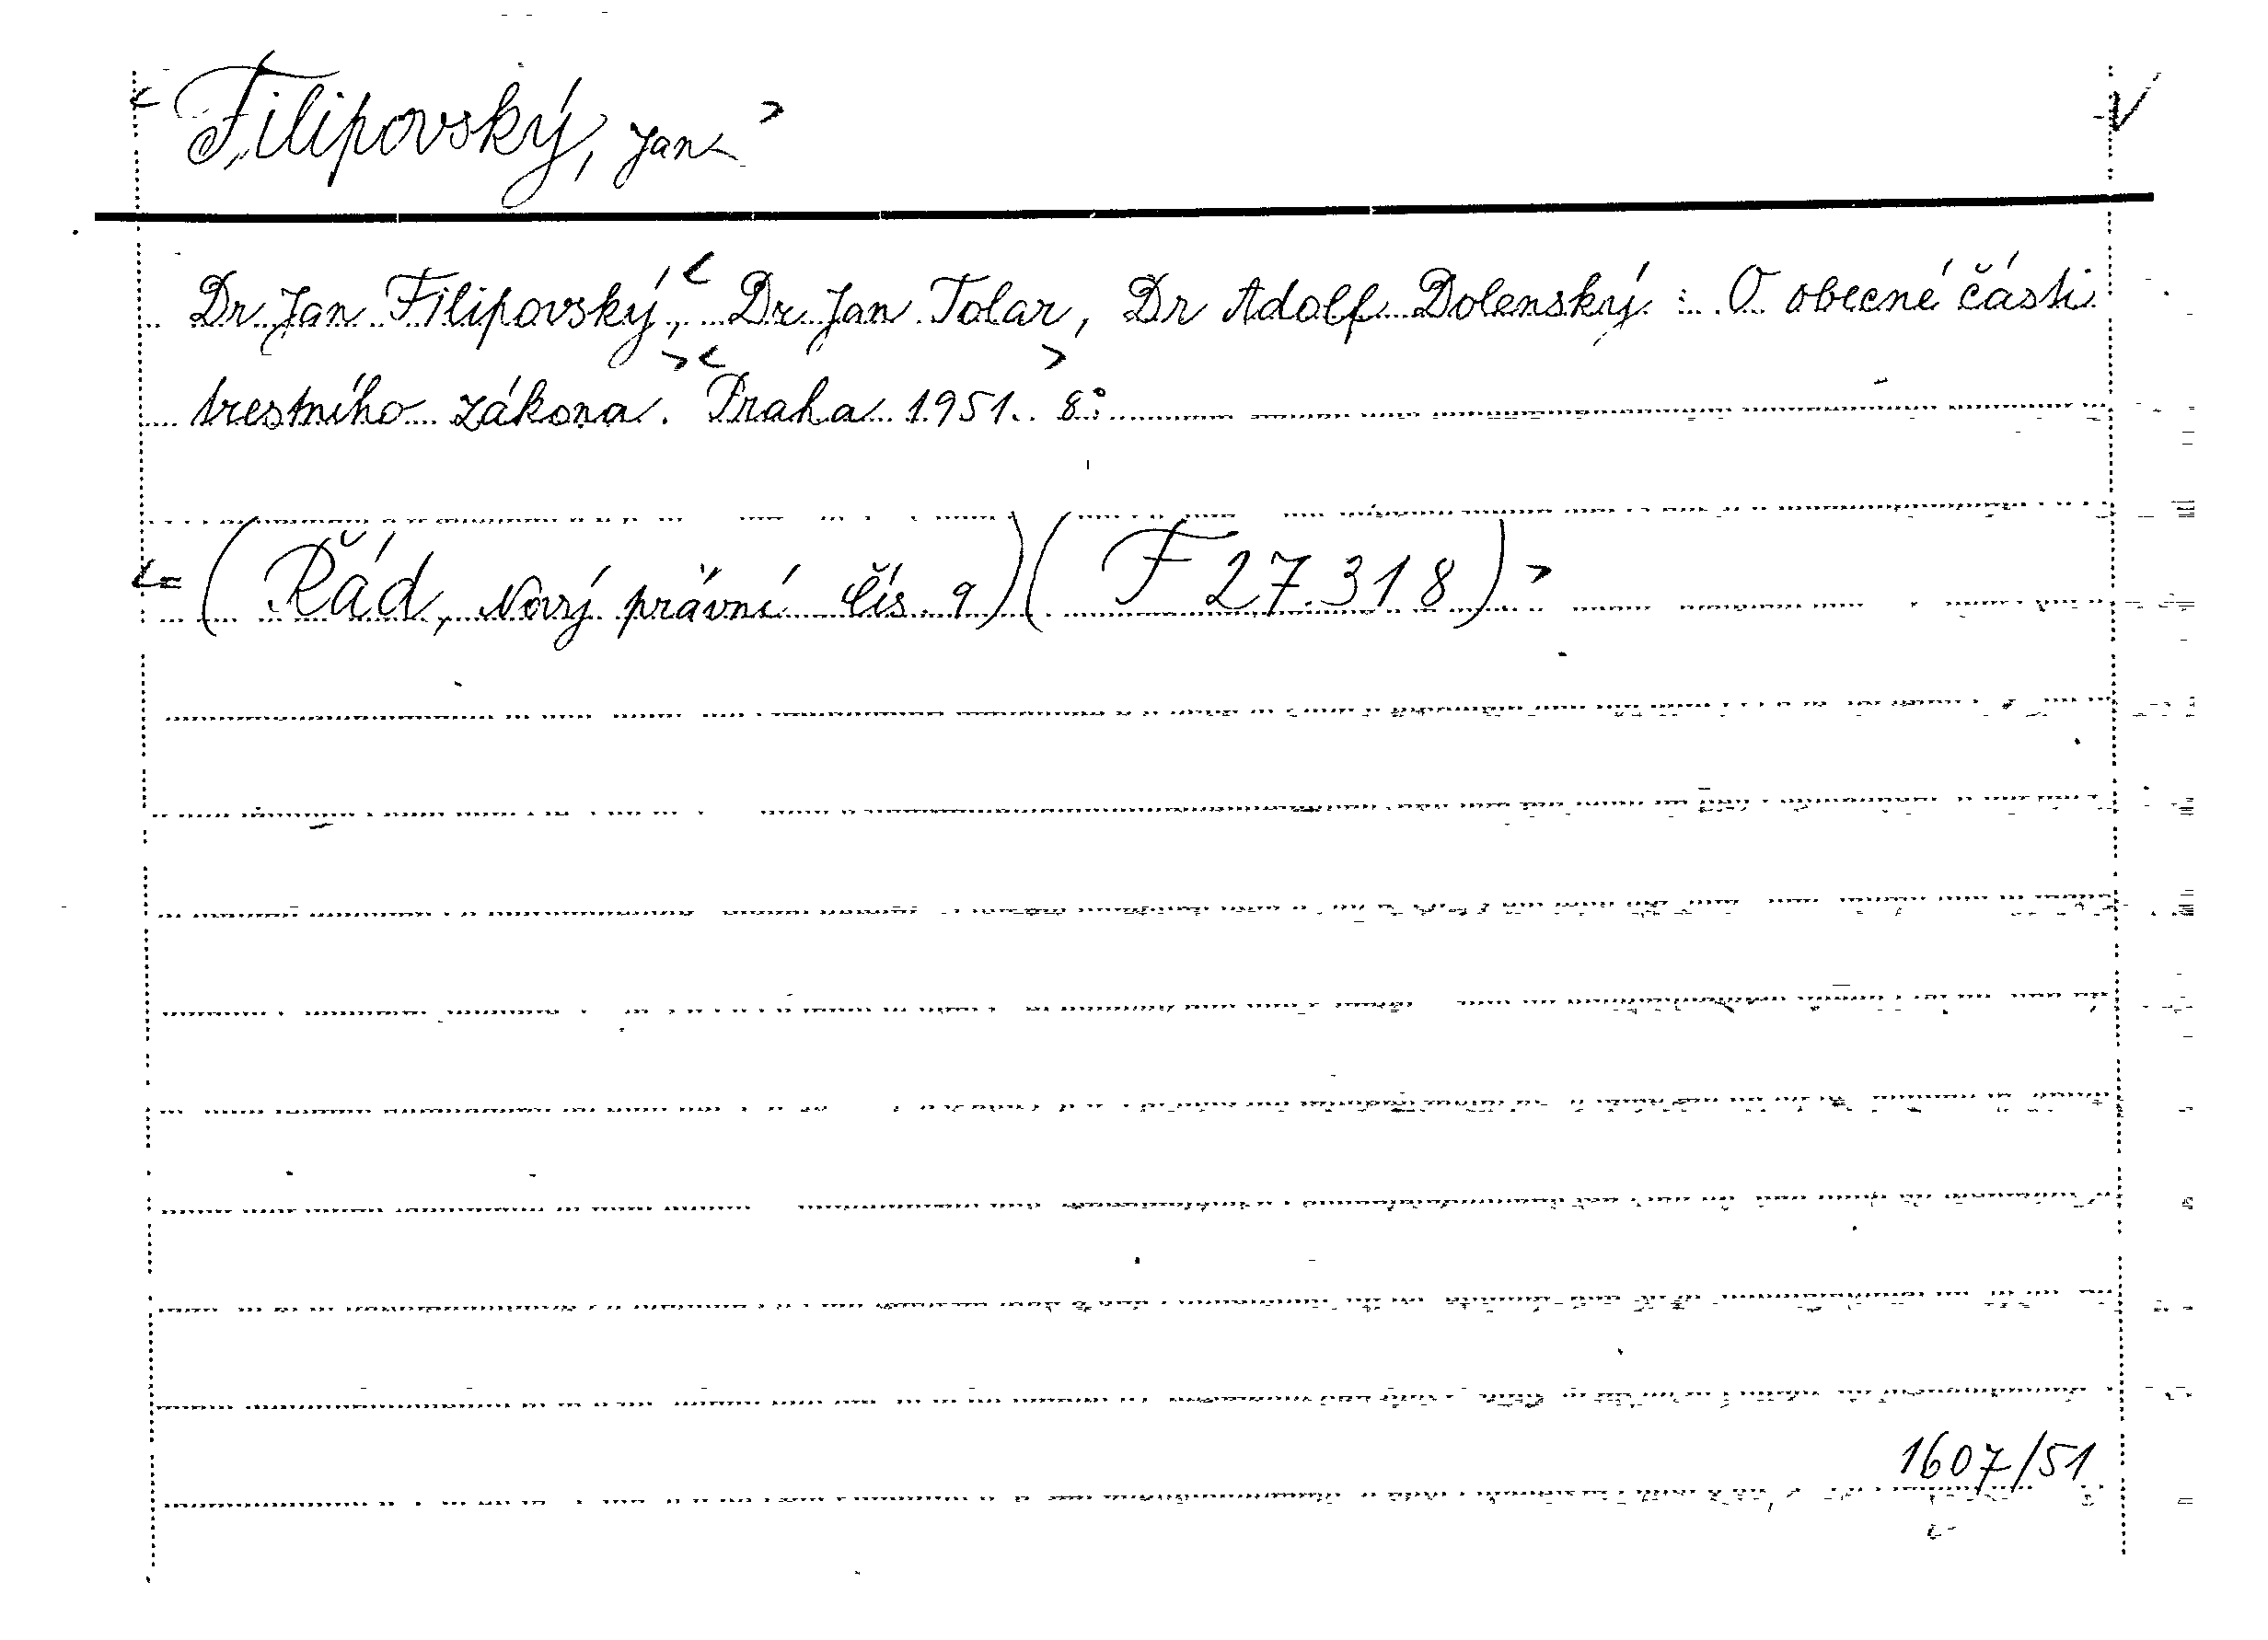 < Filipovský, Jan > V
Dr Jan Filipovský, < Dr Jan Tolar, Dr Adolf Dolenský : O obecné části
trestního zákona. > < Praha 1951. > 8°
<= (Řád, Nový právní čís. 9) (F 27.318) >
1607/51